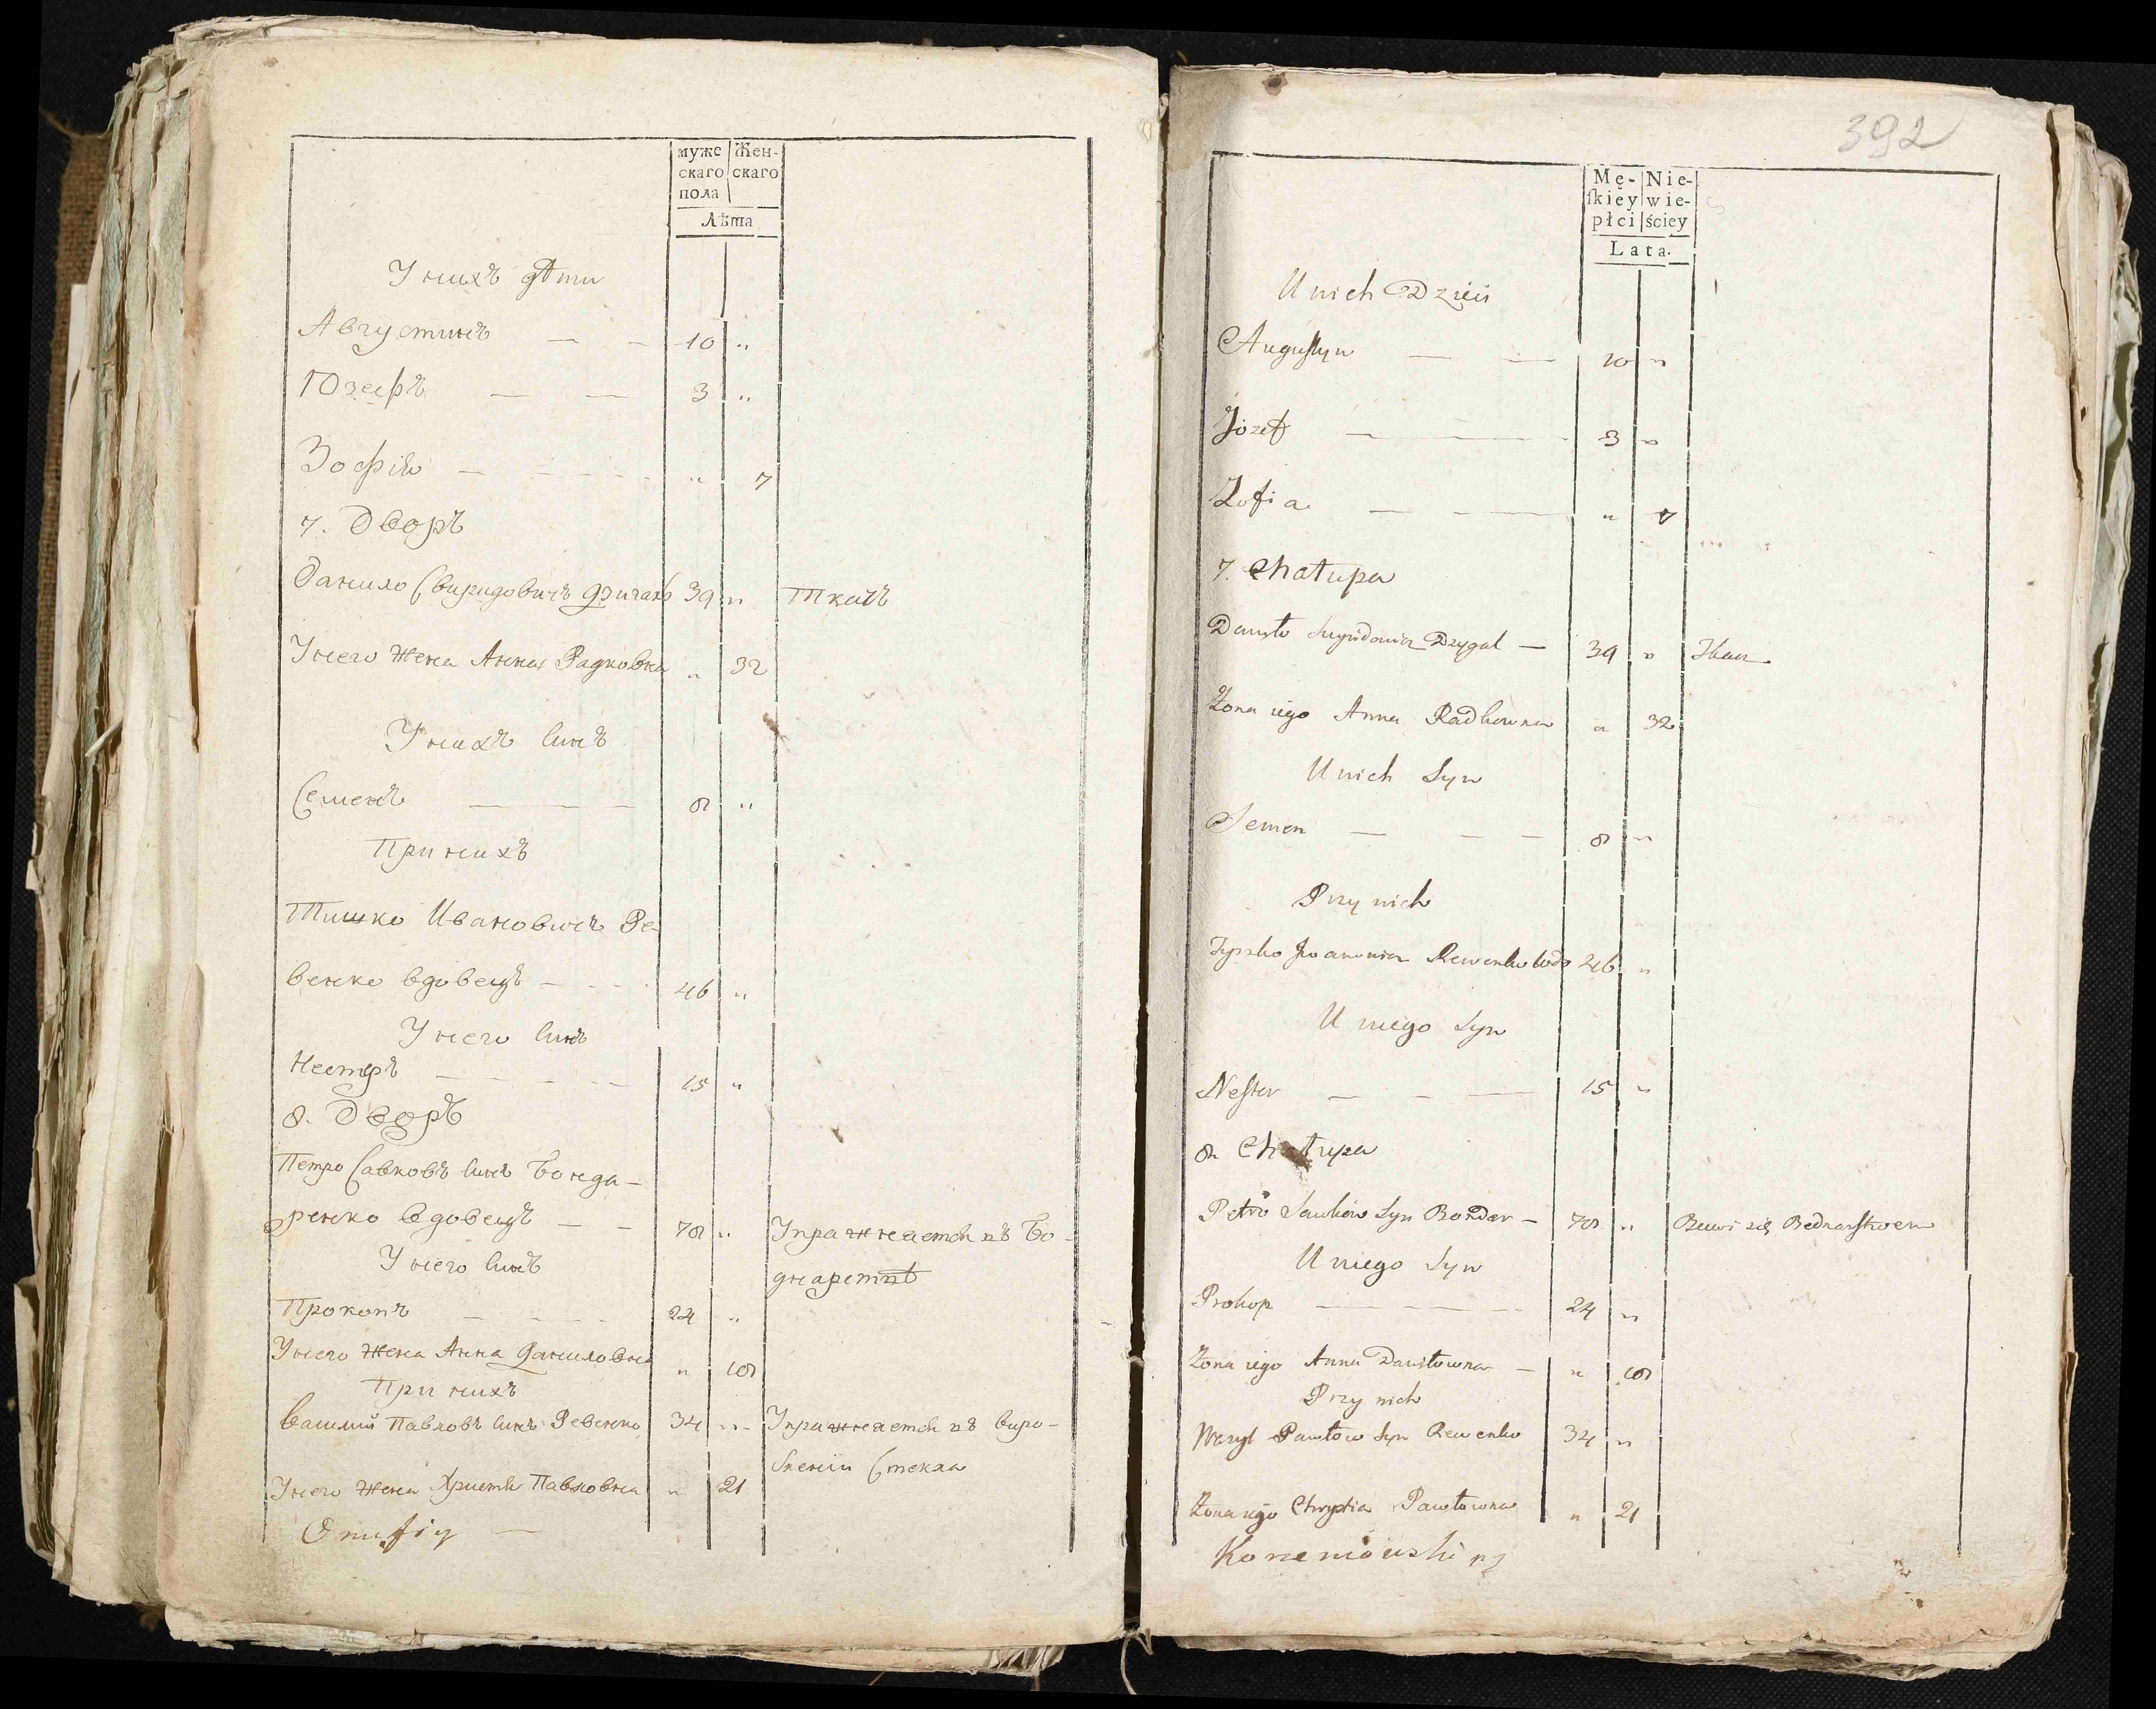 муже Жен-
скаго скаго
пола
Лѣта
У нихъ дѣти
Августинъ — — 10 "
Юзефъ — — 3 "
Зофія — " 7
7. Дворъ
Данило Свиридовичъ Дзигалъ 39 " Ткачъ
У него жена Анна Радковна " 32
У нихъ синъ
Семенъ — — — 8 "
При нихъ
Тишко Ивановичъ Ре
венко вдовецъ — 46 "
У него синъ
Нестеръ — 15 "
8. Дворъ
Петро Савковъ синъ Бонда-
ренко вдовецъ — — 78 " Упражняется въ Бо-
У него синъ
днарствѣ
Прокопъ — 24 "
У него жена Анна Даниловна " 18
При нихъ
Василій Павловъ синъ Ревенко 34 " Упражняется въ виро-
бленіи стекла
У него жена Христя Павловна " 21
Onufiy —
392
Mę- Nie-
ſkiey wie-
płci ściey
Lata.
U nich Dzieci
Auguſtyn — — 10 "
Józef — — — 3 "
Zofia — — — " 7
7. Chałupa
Daniło Swirydowicz Dzygal — 39 " Tkacz
Żona iego Anna Radkowna " 32
U nich Syn
Semen — — — 8 "
Przy nich
Tyszko Jwanowicz Rewenko wdo 46 "
U niego Syn
Neſter — — — 15 "
8. Chałupa
Petro Sawkow Syn Bondar — 78 " Bawi się Bednarſtwem
U niego Syn
Prokop — 24 "
Żona iego Anna Daniłowna — " 18
Przy nich
Wasyl Pawłow Syn Rewenko 34 "
Żona iego Chrystia Pawłowna " 21
Korzeniowski